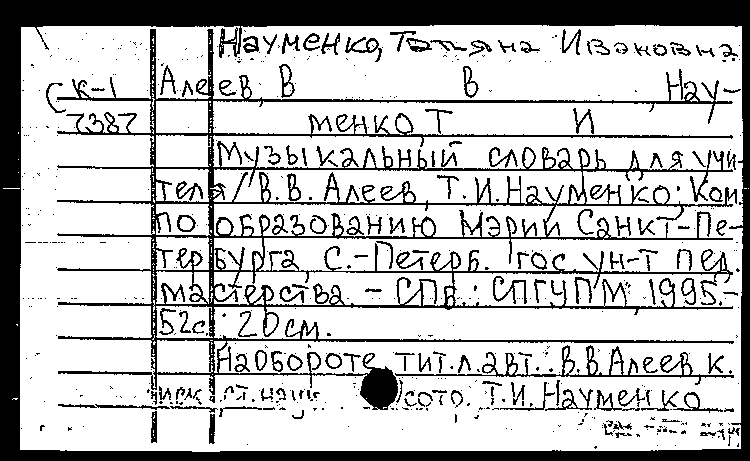 Науменко, Татьяна Ивановна
К-1 Алеев, В В , Нау-
7387 менко, Т И
Музыкальный словарь для учи-
теля / В.В. Алеев, Т.И. Науменко; Ком.
по образованию Мэрии Санкт-Пе-
тербурга, С.-Петерб. гос. ун-т пед.
мастерства. - СПб.: СПГУПМ, 1995.-
52с.; 20см.
На обороте тит.л. авт.: В.В. Алеев, к.
Т.И. Науменко